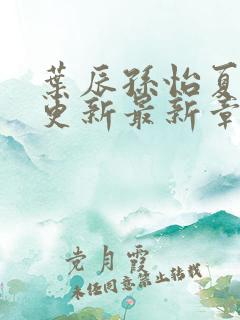 葉辰孫怡夏
更新最新章
党月霞
未经同意禁止转载